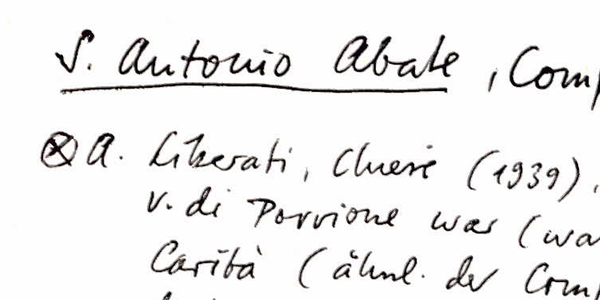 S. Antonio Abate, Comp
⊗ A. Liberati, Chiese (1939),
v. di Porrione war (wa
Carità (ähnl. der Com